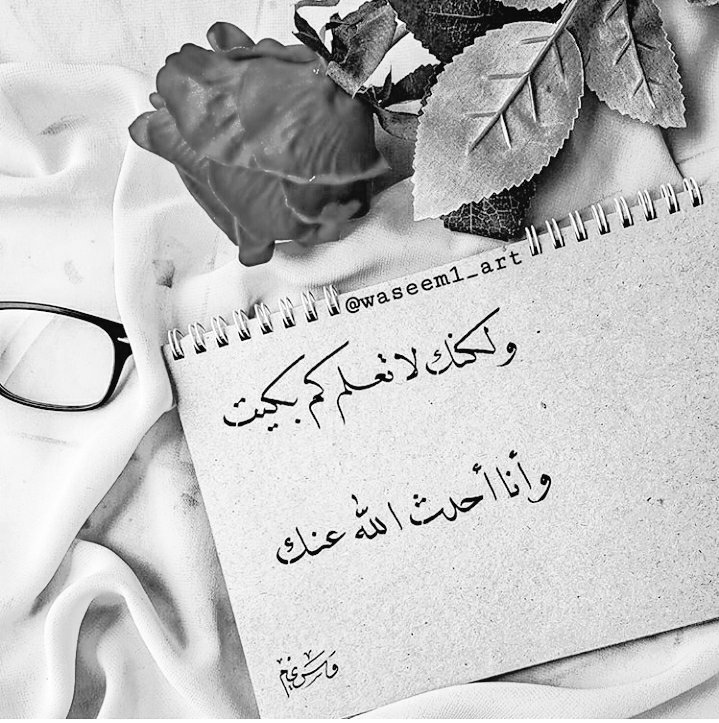 @waseem1_art
ولكنك لا تعلم كم بكيت
وأنا أحدث الله عنك